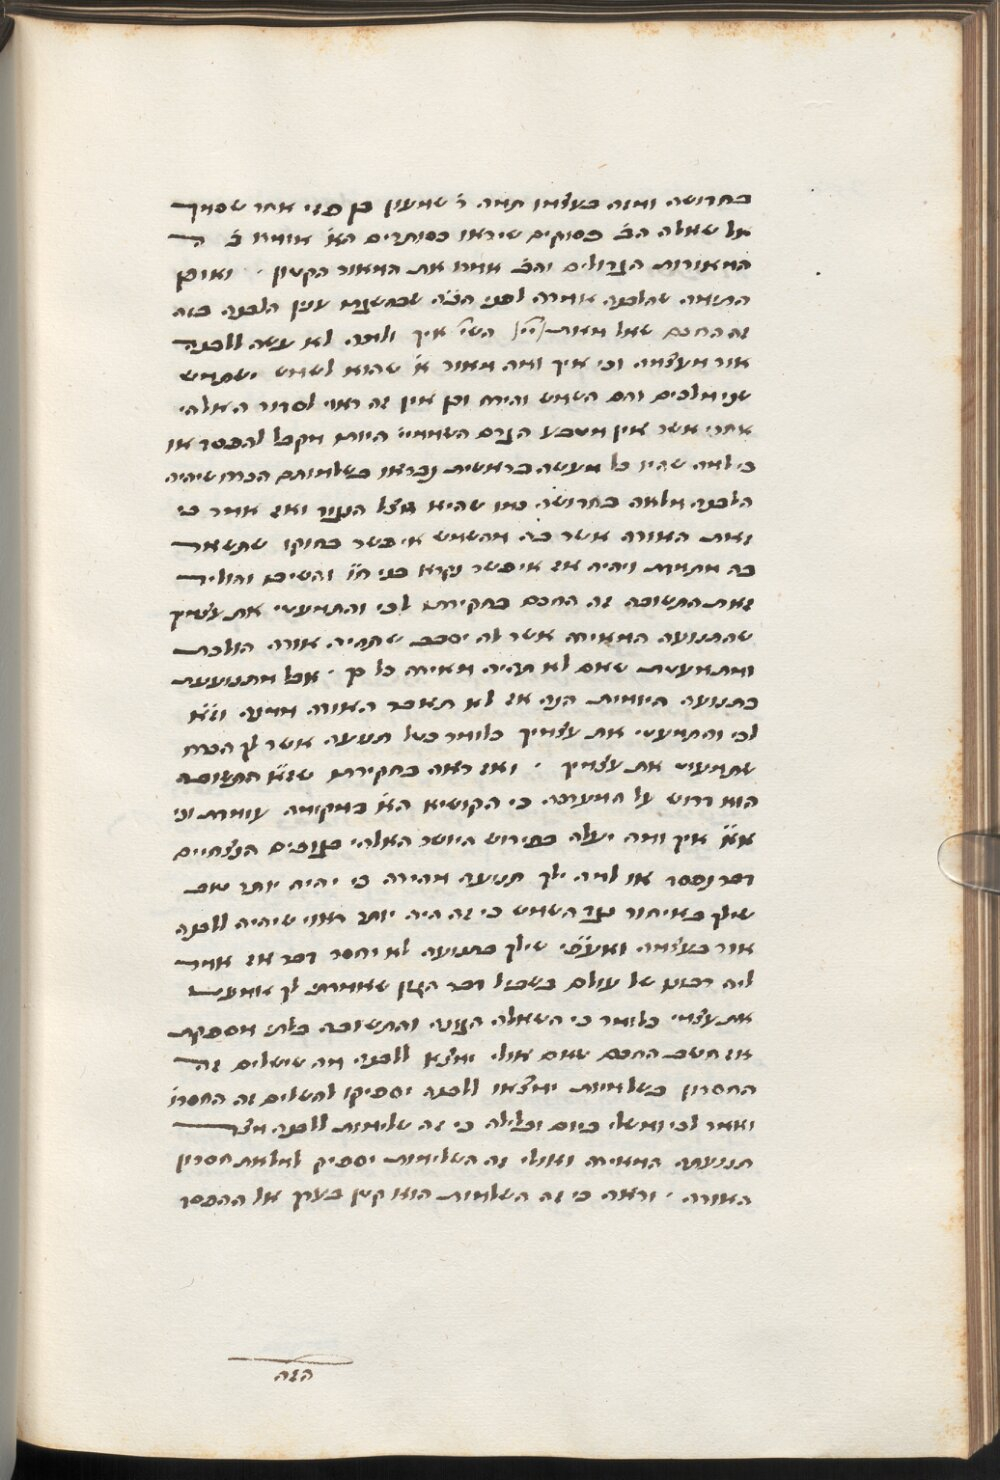 בחדושה ומזה בעצמו תמה ר׳ שמעון בן פזי אחר שסמך
אל שאלה הב׳ פסוקים שיראו כסותרים הא׳ אומרו ב׳ ה
המאורות הגדולים והב׳ אמרו את המאור הקטון · ואומ׳
התימה שהלבנה אמרה לפני הב״ה שבהשגת ענין הלבנה בזה
זה החכם שאל מאת השי״ איך ולמה לא עשה ללבנה
אור מעצמה וכי איך ומה מאור א׳ שהוא לשמש ישתמש
שני מלכים והם השמש והירח וכן אין זה ראוי לסדור האלהי
אחרי אשר אין מטבע הגרם השממיי היותו מקבל להפסד או
כי למה שהיו כל מעשה בראשית נבראו בשלמותם הכרח שיהיה
הלבנה מלאה בחדושה כמו שהיא אצל הנגוד ואז אמר כי
זאת האורה אשר בה מהשמש אי אפשר בחוקו שתשאר
בה מתמדת ויהיה אז אי אפשר נקרא בני ח״ו והשיבו והוליד
זאת התשובה זה החכם בחקירתו לכי והתמעטי את עצמיך
שהתנועה המאיחרת אשר לה יסבב שתהיה אורה הולכת
ומתמעטת שאם לא תהיה מאיחרת כל כך · אבל מתנועעת
בתנועה היומית הנה אז לא תאבד האורה ממנה וז״א
לכי והתמעטי את עצמיך כלומר בעל תנועה אשר לך הכרח
שתמעיט את עצמיך · ואז ראה בחקירתו שז״א התשובה
הוא דרוש על המערכה כי הקושיא הא׳ במקומה עומדת וכי
א״א איך ומה יעלה בפירוש היושר האלהי בגופים הנצחיים
דבר נפסד או למה ילך תנועה מהירה כי יהיה יותר טוב
שילך באיחור נגד השמש כי זה היה יותר ראוי שיהיה ללבנה
אור בעצמה ואעפ״י שילך בתנועה לא יחסר דבר אז אמר
ליה רבונו של עולם בשביל דבר הגון שאמרתי לך אמעיט
את עצמי כלומר כי השאלה הגונה והתשובה בלתי מספקת
אז חשב החכם שאם אולי ימצא ללבנה מה שישלים זה
החסרון בשלמיות ימצאו ללבנה יספיקו להשלים זה החסרו׳
ואמר לכי ומשלי ביום ובלילה כי זה שלימות ללבנה מצד
תנועתה המאיחרת ואולי זה השלימות יספיק למלאת חסרון
האורה · וראה כי זה השלמות הוא קטן בערך אל ההפסד
הזה